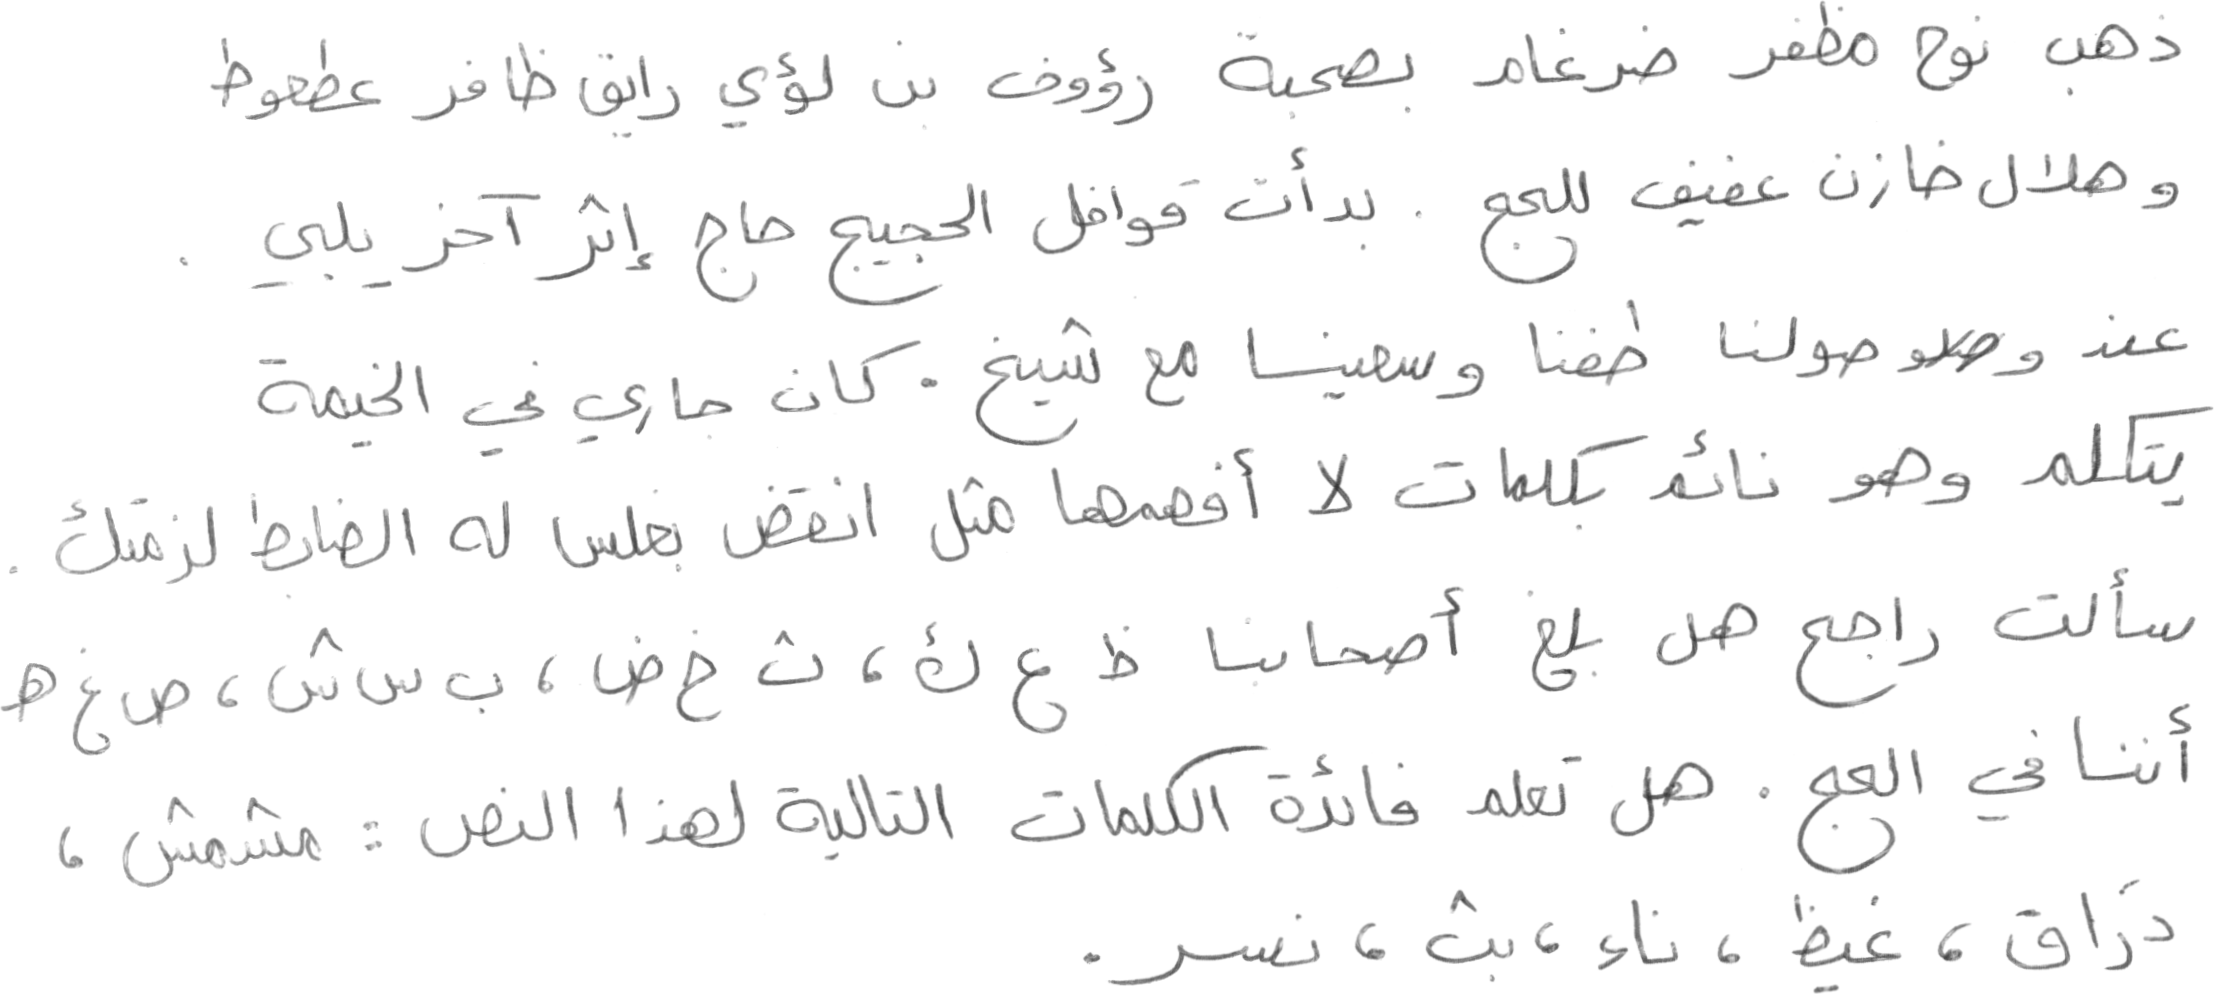 ذهب نوح مظفر ضرغام بصحبة رؤوف بن لؤي رايق ظافر عطعوط
وهلال خازن عفيف للحج . بدأت قوافل الحجيج حاج إثر آخر يلبي .
عند وصولنا طفنا وسعينا مع شيخ . كان جاري في الخيمة
يتكلم وهو نائم بكلمات لا أفهمها مثل انقض بغلس له الضابط لزمتك .
سألت راجح هل بلغ أصحابنا ظ ع ك ، ث خ ض ، ب س ش ، ص غ ه
أننا في الحج . هل تعلم فائدة الكلمات التالية لهذا النص : مشمش ،
دراق ، غيظ ، ناء ، بث ، نسر .